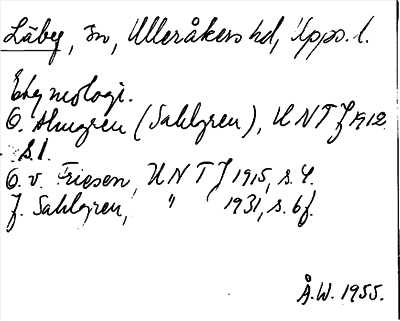 Läby, sn, Ulleråkers hd, Upps. l.
Etymologi.
O. Almgren (Sahlgren), UNTJ 1912
s. 1.
O. v. Friesen, UNTJ 1915, s. 4.
J. Sahlgren, " 1931, s. 6 f.
Å.W. 1955.